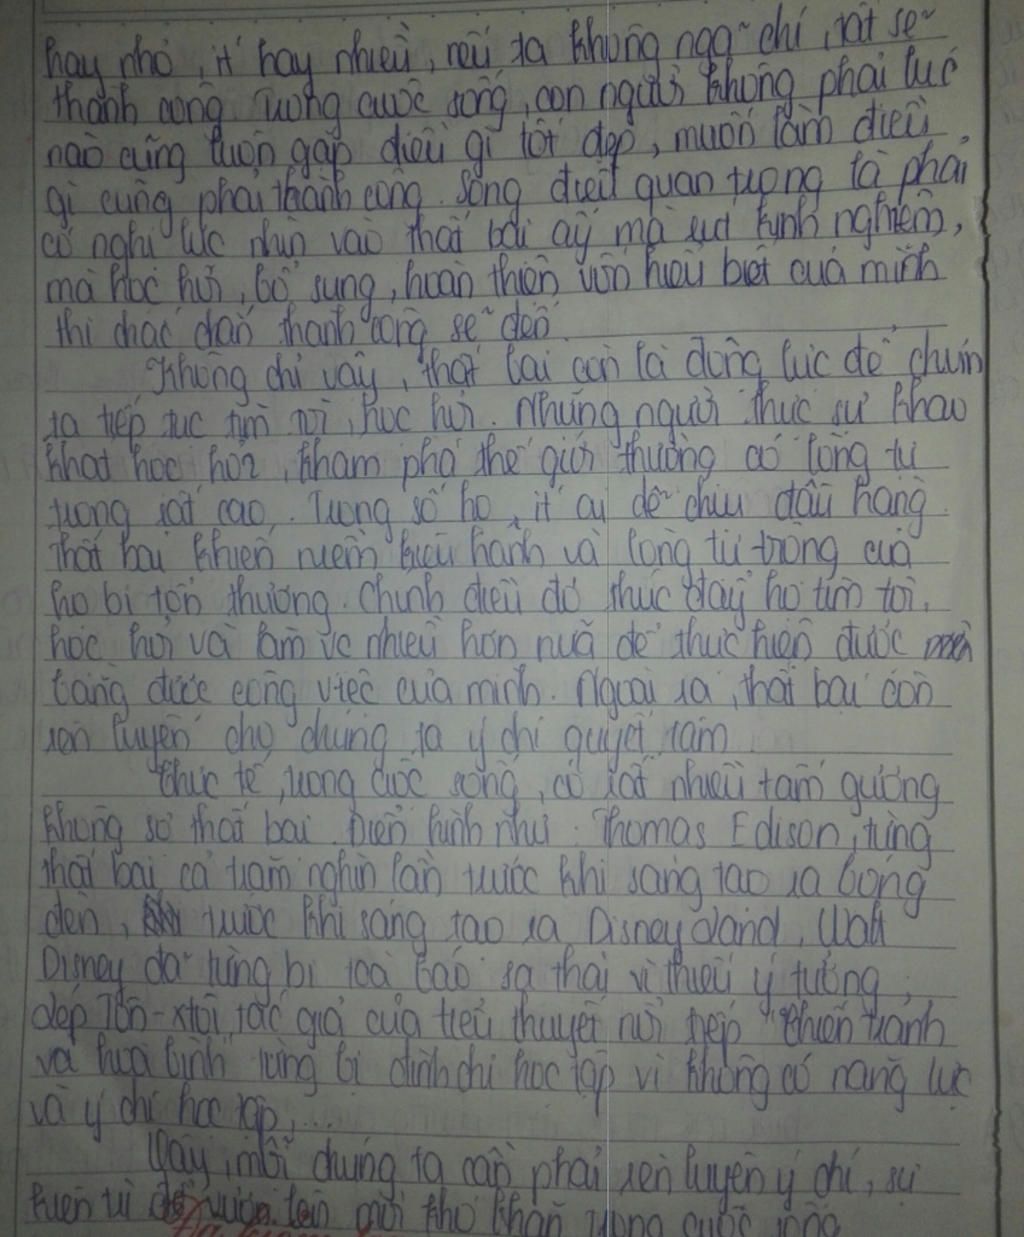 hay nhỏ, ít hay nhiều, nếu ta không ngại chí, rất sẽ
thành công. Trong cuộc sống, con người không phải lúc
nào cũng luôn gặp điều gì tốt đẹp, muốn làm điều
gì cũng phải thành công. Song điều quan trọng là phải
có nghị lực nhìn vào thất bại ấy mà rút kinh nghiệm,
mà học hỏi, bổ sung, hoàn thiện vốn hiểu biết của mình
thì chắc chắn thành công sẽ đến.
Không chỉ vậy, thất bại còn là động lực để chúng
ta tiếp tục tìm tòi, học hỏi. Những người thực sự khao
khát học hỏi, khám phá thế giới thường có lòng tự
trọng rất cao. Trong số họ, ít ai dễ chịu đầu hàng.
Thất bại khiến niềm kiêu hãnh và lòng tự trọng của
họ bị tổn thương. Chính điều đó thúc đẩy họ tìm tòi,
học hỏi và làm vc nhiều hơn nữa để thực hiện được
bằng được công việc của mình. Ngoài ra, thất bại còn
rèn luyện cho chúng ta ý chí quyết tâm.
Thực tế, trong cuộc sống, có rất nhiều tấm gương
không sợ thất bại. Điển hình như: Thomas Edison, từng
thất bại cả trăm nghìn lần trước khi sáng tạo ra bóng
đèn, trước khi sáng tạo ra Disneydland, Walt
Disney đã từng bị toà báo sa thải vì thiếu ý tưởng,
Lép Tôn-xtôi, tác giả của tiểu thuyết nổi tiếp "Chiến tranh
và hoà bình" từng bị đình chỉ học tập vì không có năng lực
và ý chí học tập,...
Vậy, mỗi chúng ta cần phải rèn luyện ý chí, sự
kiên trì để vươn lên mọi khó khăn trong cuộc sống